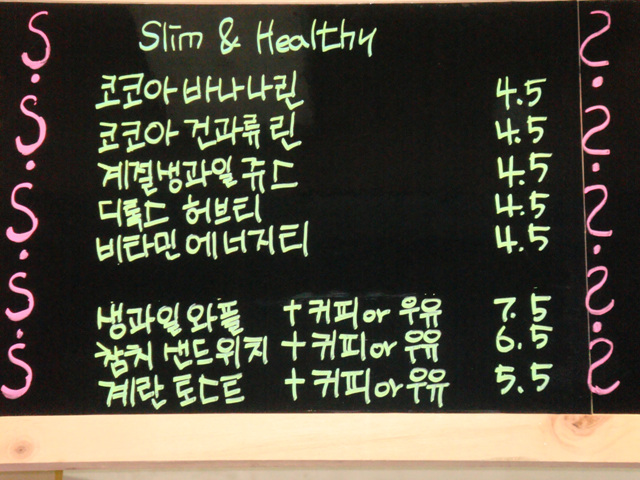 Slim & Healthy
코코아 바나나린 4.5
코코아 건과류린 4.5
계절생과일쥬스 4.5
디톡스 허브티 4.5
비타민에너지티 4.5
생과일와플 +커피or우유 7.5
참치샌드위치 +커피or우유 6.5
계란토스트 +커피or우유 5.5